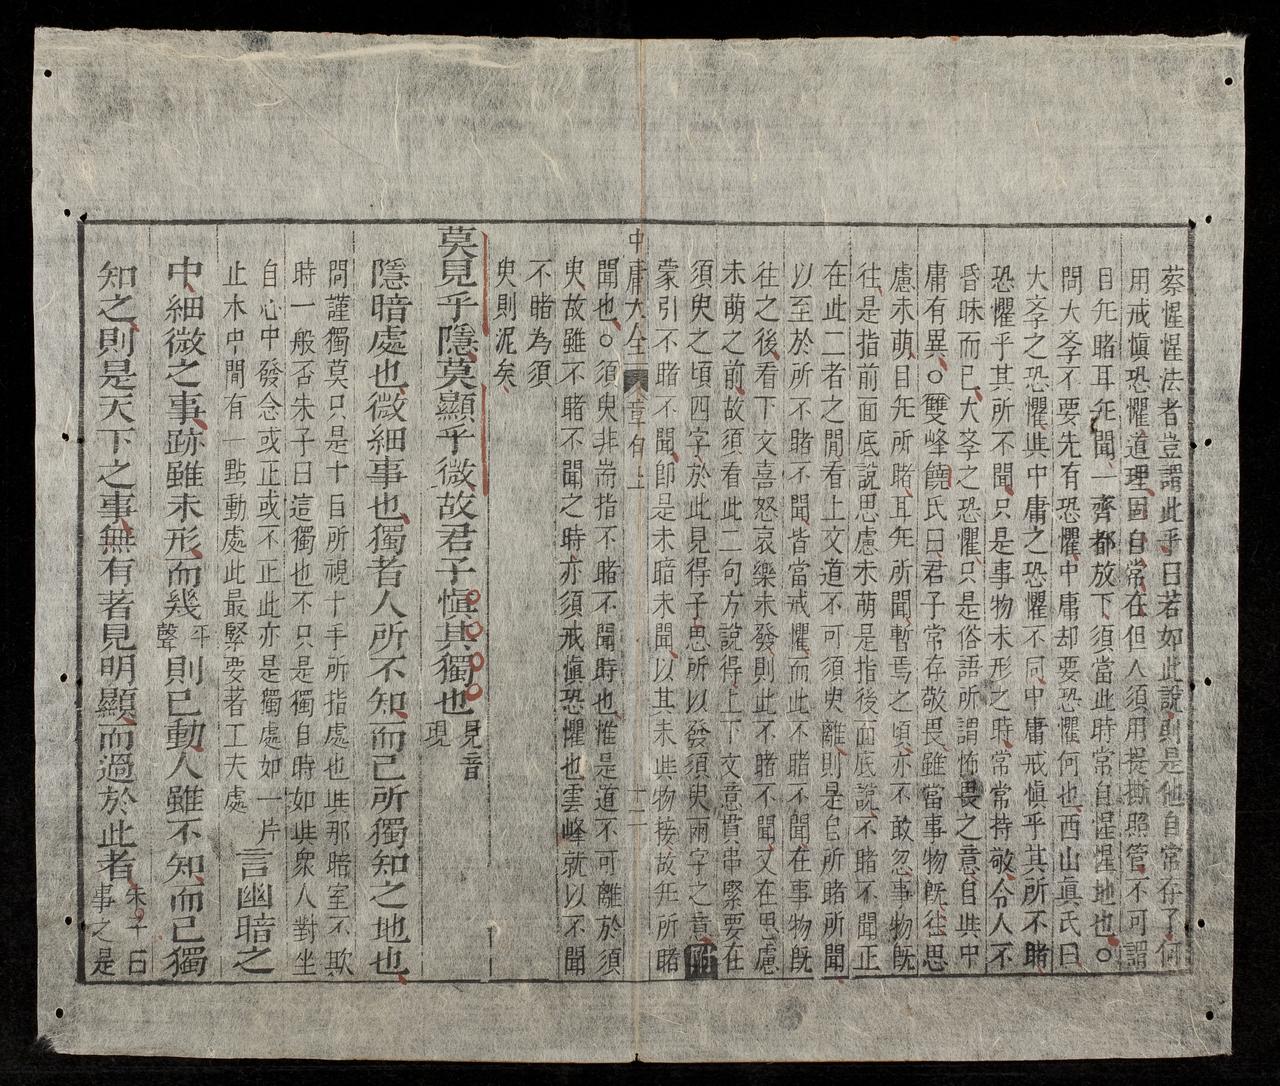 蔡惺惺法者豈謂此乎曰若如此說則是他自常存了何
用戒愼恐懼道理固自常在但人須用提撕照管不可謂
目旡睹耳旡聞一齊都放下須當此時常自惺惺地也○
問大斈不要先有恐懼中庸却要恐懼何也西山眞氏曰
大斈之恐懼與中庸之恐懼不同中庸戒愼乎其所不睹
恐懼乎其所不聞只是事物未形之時常常持敬令人不
昏昧而已大斈之恐懼只是俗語所謂怖畏之意自與中
庸有異○雙峰饒氏曰君子常存敬畏雖當事物旣往思
慮未萌目旡所睹耳旡所聞暫焉之頃亦不敢忽事物旣
往是指前面底說思慮未萌是指後面底說不睹不聞正
在此二者之閒看上文道不可須臾離則是自所睹所聞
以至於所不睹不聞皆當戒懼而此不睹不聞在事物旣
往之後看下文喜怒哀樂未發則此不睹不聞又在思慮
未萌之前故須看此二句方說得上下文意貫串緊要在
須臾之頃四字於此見得子思所以發須臾兩字之意附
蒙引不睹不聞卽是未睹未聞以其未與物接故旡所睹
中庸大全 章句上 十二
聞也○須臾非耑指不睹不聞時也惟是道不可離於須
臾故雖不睹不聞之時亦須戒愼恐懼也雲峰就以不聞
不睹為須
臾則泥矣
莫見乎隱莫顯乎微故君子愼其獨也見音
現
隱暗處也微細事也獨者人所不知而己所獨知之地也
問謹獨莫只是十目所視十手所指處也與那暗室不欺
時一般否朱子曰這獨也不只是獨自時如與衆人對坐
自心中發念或正或不正此亦是獨處如一片
止水中閒有一點動處此最緊要著工夫處
言幽暗之
中細微之事跡雖未形而幾平
聲則已動人雖不知而己獨
知之則是天下之事無有著見明顯而過於此者朱子曰
事之是